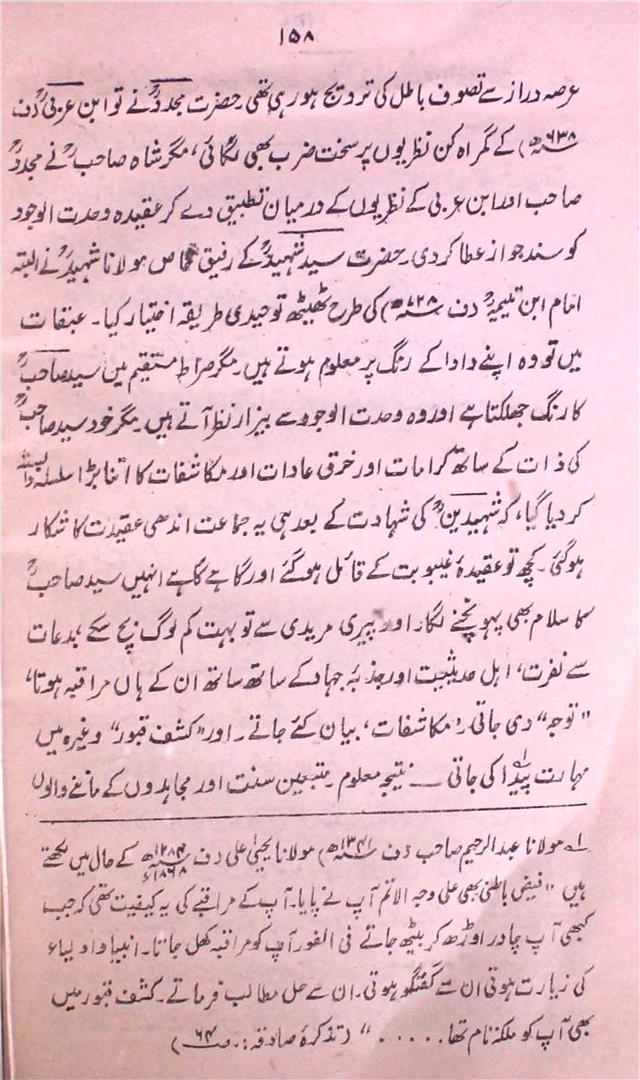 ۱۵۸
عرصہ دراز سے تصوف باطل کی ترویج ہو رہی تھی حضرت مجددؒ نے تو ابن عربیؒ (ف
۶۳۸ھ) کے گمراہ کن نظریوں پر سخت ضرب بھی لگائی، مگر شاہ صاحبؒ نے مجددؒ
صاحب اور ابن عربی کے نظریوں کے درمیان تطبیق دے کر عقیدہ وحدت الوجود
کو سند جواز عطا کر دی۔ حضرت سید شہیدؒ کے رفیق خاص مولانا شہیدؒ نے البتہ
امام ابن تیمیہؒ (ف ۷۲۸ھ) کی طرح ٹھیٹھ توحیدی طریقہ اختیار کیا۔ عبقات
میں تو وہ اپنے دادا کے رنگ پر معلوم ہوتے ہیں۔ مگر صراط مستقیم میں سید صاحبؒ
کا رنگ جھلکتا ہے اور وہ وحدت الوجود سے بیزار نظر آتے ہیں۔ مگر خود سید صاحبؒ
کی ذات کے ساتھ کرامات اور خرق عادات اور مکاشفات کا اتنا بڑا سلسلہ وابستہ
کر دیا گیا، کہ شہیدینؒ کی شہادت کے بعد ہی یہ جماعت اندھی عقیدت کا شکار
ہو گئی۔ کچھ تو عقیدۂ غیبوبت کے قائل ہو گئے اور گاہے گاہے انہیں سید صاحبؒ
کا سلام بھی پہونچنے لگا۔ اور پیری مریدی سے تو بہت کم لوگ بچ سکے بدعات
سے نفرت، اہل حدیثیت اور جذبۂ جہاد کے ساتھ ساتھ ان کے ہاں مراقبہ ہوتا،
"توجہ" دی جاتی۔ 'مکاشفات' بیان کئے جاتے۔ اور "کشف قبور" وغیرہ میں
مہارت پیدا کی جاتی۱؎ ــــ نتیجہ معلوم۔ متبعین سنت اور مجاہدوں کے ماننے والوں
۱؎ مولانا عبدالرحیم صاحب (ف ۱۳۴۱ھ) مولانا یحییٰ علی (ف ۱۲۸۴ھ ۱۸۶۸ء) کے حال میں لکھتے
ہیں "فیض باطنی بھی علی وجہ الاتم آپ نے پایا۔ آپ کے مراقبے کی یہ کیفیت تھی کہ جب
کبھی آپ چادر اوڑھ کر بیٹھ جاتے فی الفور آپ کو مراقبہ کھل جاتا۔ انبیا و اولیاء
کی زیارت ہوتی ان سے گفتگو ہوتی۔ ان سے حل مطالب فرماتے۔ کشف قبور میں
بھی آپ کو ملکہ تام تھا۔۔۔۔۔" (تذکرۂ صادقہ: ص ۶۴)